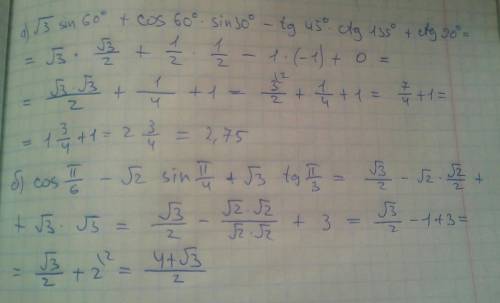 а) √3 sin 60° + cos 60° · sin 30° − tg 45° · ctg 135° + ctg 90° =
= √3 · √3/2 + 1/2 · 1/2 − 1 · (−1) + 0 =
= √3 · √3/2 + 1/4 + 1 = 3\²/2 + 1/4 + 1 = 7/4 + 1 =
= 1 3/4 + 1 = 2 3/4 = 2,75
б) cos π/6 − √2 sin π/4 + √3 tg π/3 = √3/2 − √2 · √2/2 +
+ √3 · √3 = √3/2 − √2 · √2/√2 · √2 + 3 = √3/2 − 1 + 3 =
= √3/2 + 2\² = 4 + √3/2